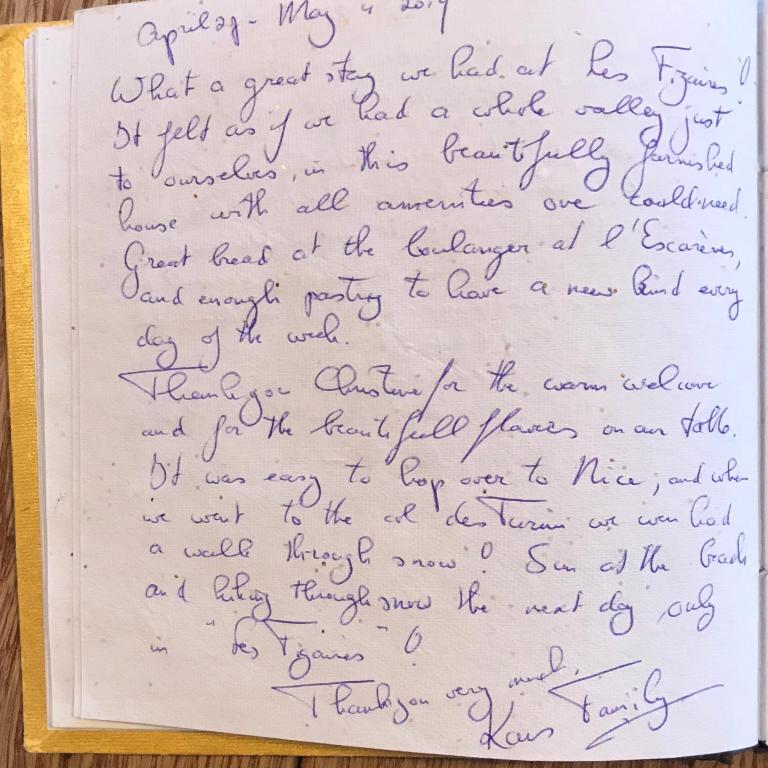 April 29 - May 4 2019
What a great stay we had at Les Figaires!
It felt as if we had a whole valley just
to ourselves, in this beautifully furnished
house with all amenities one could need.
Great bread at the boulanger at l'Escarènes,
and enough pastry to have a new kind every
day of the week.
Thank you Christine for the warm welcome
and for the beautifull flowers on our table.
It was easy to hop over to Nice, and when
we went to the col des Turini we even had
a walk through snow! Sun at the beach
and hiking through snow the next day, only
in "Les Figaires"!
Thank you very much,
Family